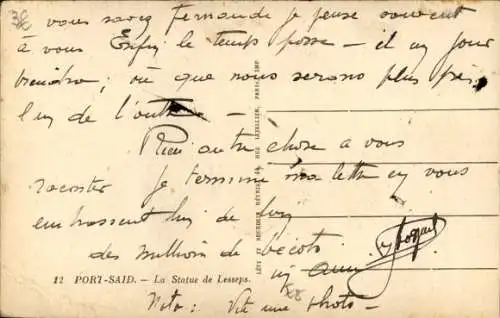 vous savez Fernande je pense souvent
à vous Enfin le temps passe — il un jour
viendra, où que nous serons plus près
l'un de l'autre —
Rien autre chose a vous
raconter je termine ma lettre en vous
embrassant bien de loin
des millions de bécots
un ami
12 PORT-SAID. — La Statue de Lesseps.
LÉVY ET NEURDEIN RÉUNIS, 44, RUE LETELLIER, PARIS. IMP.
Nota: Vite une photo —